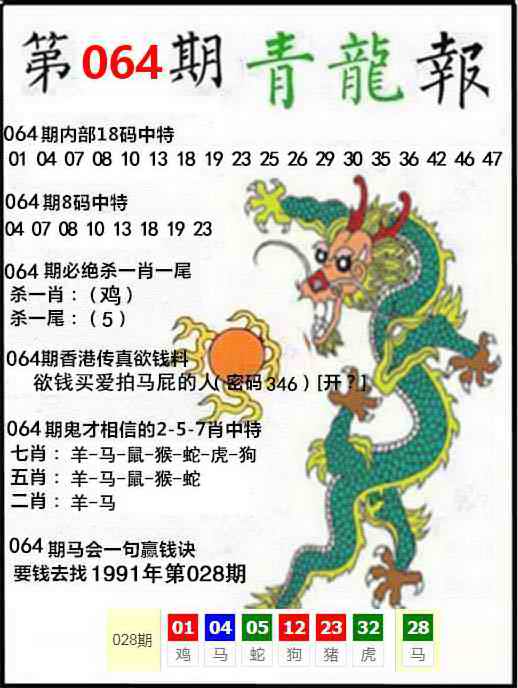 第064期青龍報
064期内部18码中特
01 04 07 08 10 13 18 19 23 25 26 29 30 35 36 42 46 47
064期8码中特
04 07 08 10 13 18 19 23
064期必绝杀一肖一尾
杀一肖：（鸡）
杀一尾：（5）
064期香港传真欲钱料
欲钱买爱拍马屁的人（密码346）[开？]
064期鬼才相信的2-5-7肖中特
七肖：羊-马-鼠-猴-蛇-虎-狗
五肖：羊-马-鼠-猴-蛇
二肖：羊-马
064期马会一句赢钱诀
要钱去找1991年第028期
028期 01 04 05 12 23 32 28
鸡 马 蛇 狗 猪 虎 马